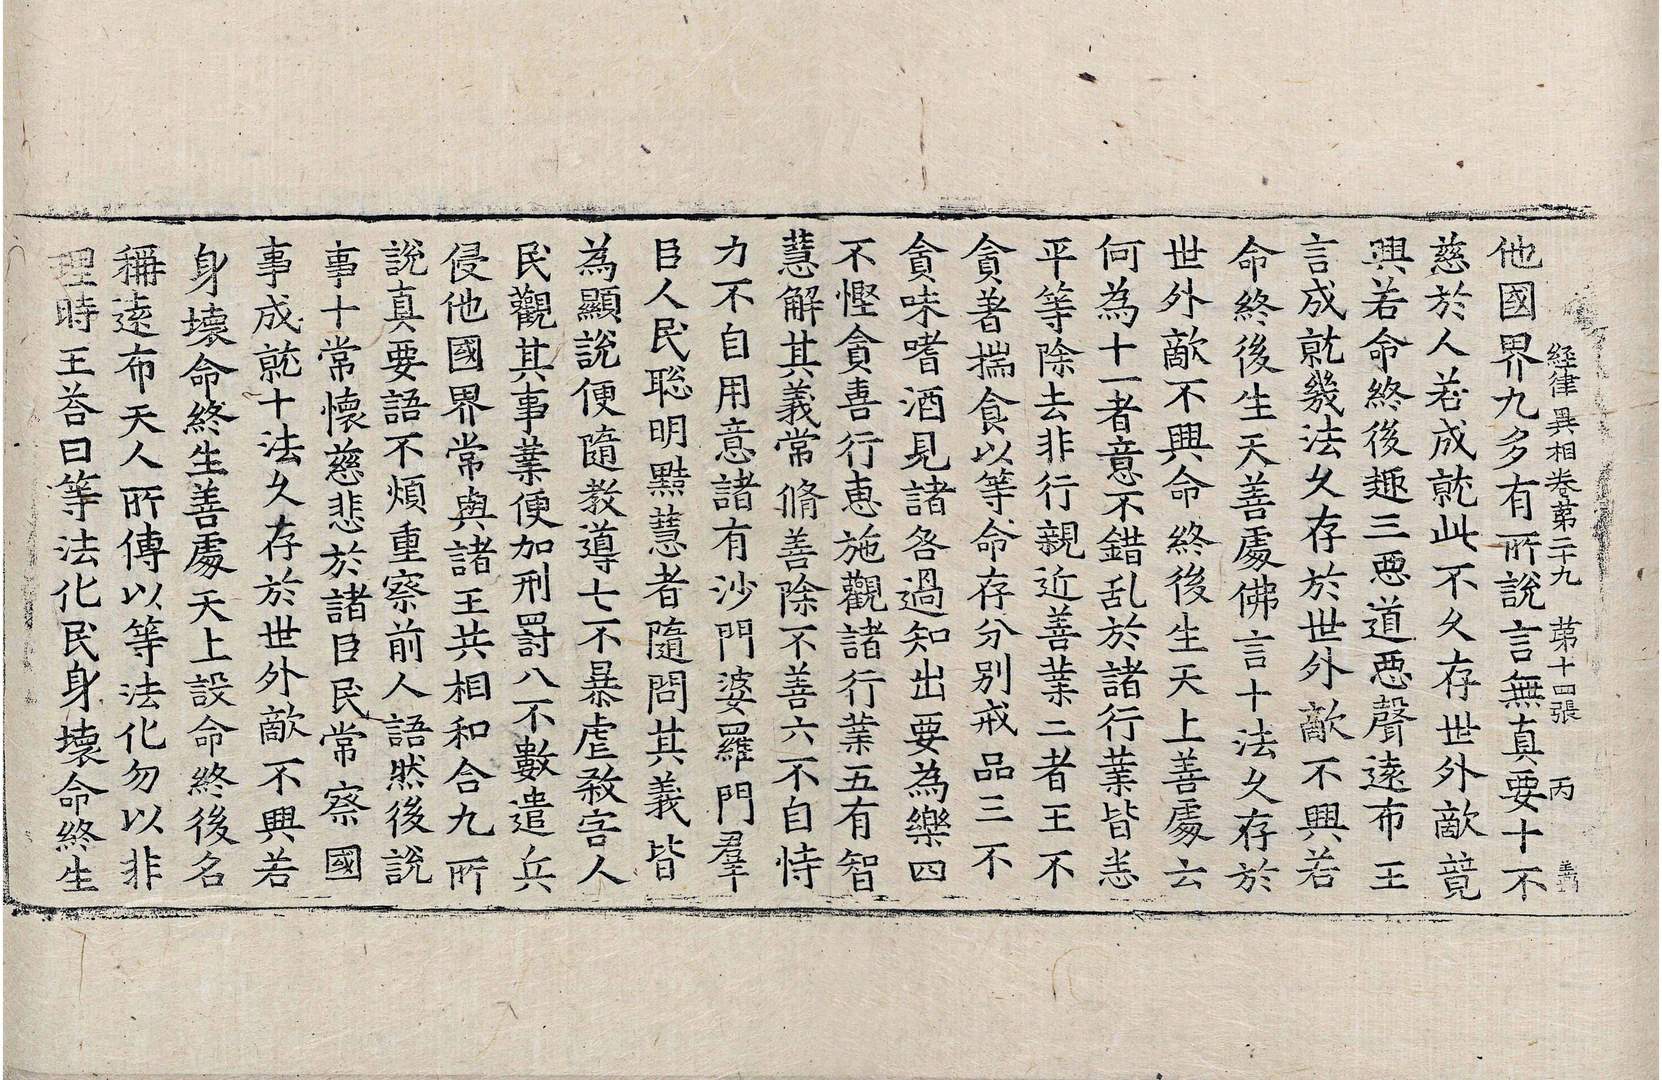 経律異相卷苐二十九 苐十四張 丙
他國界九多有所說言無真要十不
慈於人若成就此不久存世外敵競
興若命終後趣三惡道惡聲逺布王
言成就幾法久存於世外敵不興若
命終後生天善處佛言十法久存於
世外敵不興命終後生天上善處云
何為十一者意不錯乱於諸行業皆悉
平等除去非行親近善業二者王不
貪著揣食以等命存分別戒品三不
貪味嗜酒見諸各過知出要為樂四
不慳貪喜行惠施觀諸行業五有智
慧解其義常脩善除不善六不自恃
力不自用意諸有沙門婆羅門羣
臣人民聡明黠慧者隨問其義皆
為顯說便隨教導七不暴虐煞害人
民觀其事業便加刑罸八不數遣兵
侵他國界常與諸王共相和合九所
說真要語不煩重察前人語然後說
事十常懷慈悲於諸臣民常察國
事成就十法久存於世外敵不興若
身壊命終生善處天上設命終後名
稱逺布天人所傳以等法化勿以非
理時王荅曰等法化民身壊命終生